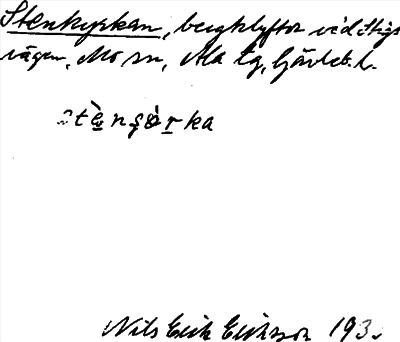 Stenkyrkan, bergklyftor vid Stigs
vägen, Mo sn, Ala tg, Gävleb. l.
stènçø̀rka
Nils Erik Eriksson 193